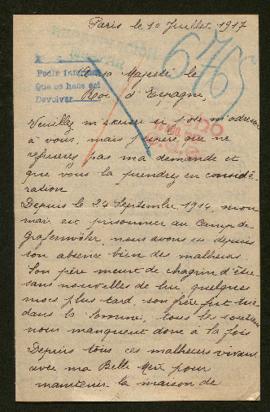 Paris le 10 Juillet 1917
A sa Majesté le
Roi d'Espagne,
Veuillez m'excuser si j'ose m'adresser
à vous, mais j'espère que ne
refuserez pas ma demande et
que vous la prendrez en considé-
ration
Depuis le 24 Septembre 1914, mon
mari est prisonnier au Camp de
nous avons eu depuis
son absence bien des malheurs
Son père meurt de chagrin d'être
sans nouvelles de lui, quelques
mois plus tard, son frère fut tué
dans la Somme, tous les soutiens
nous manquent donc à la fois
Depuis tous ces malheurs vivant
avec ma Belle Mère pour
maintenir la maison de